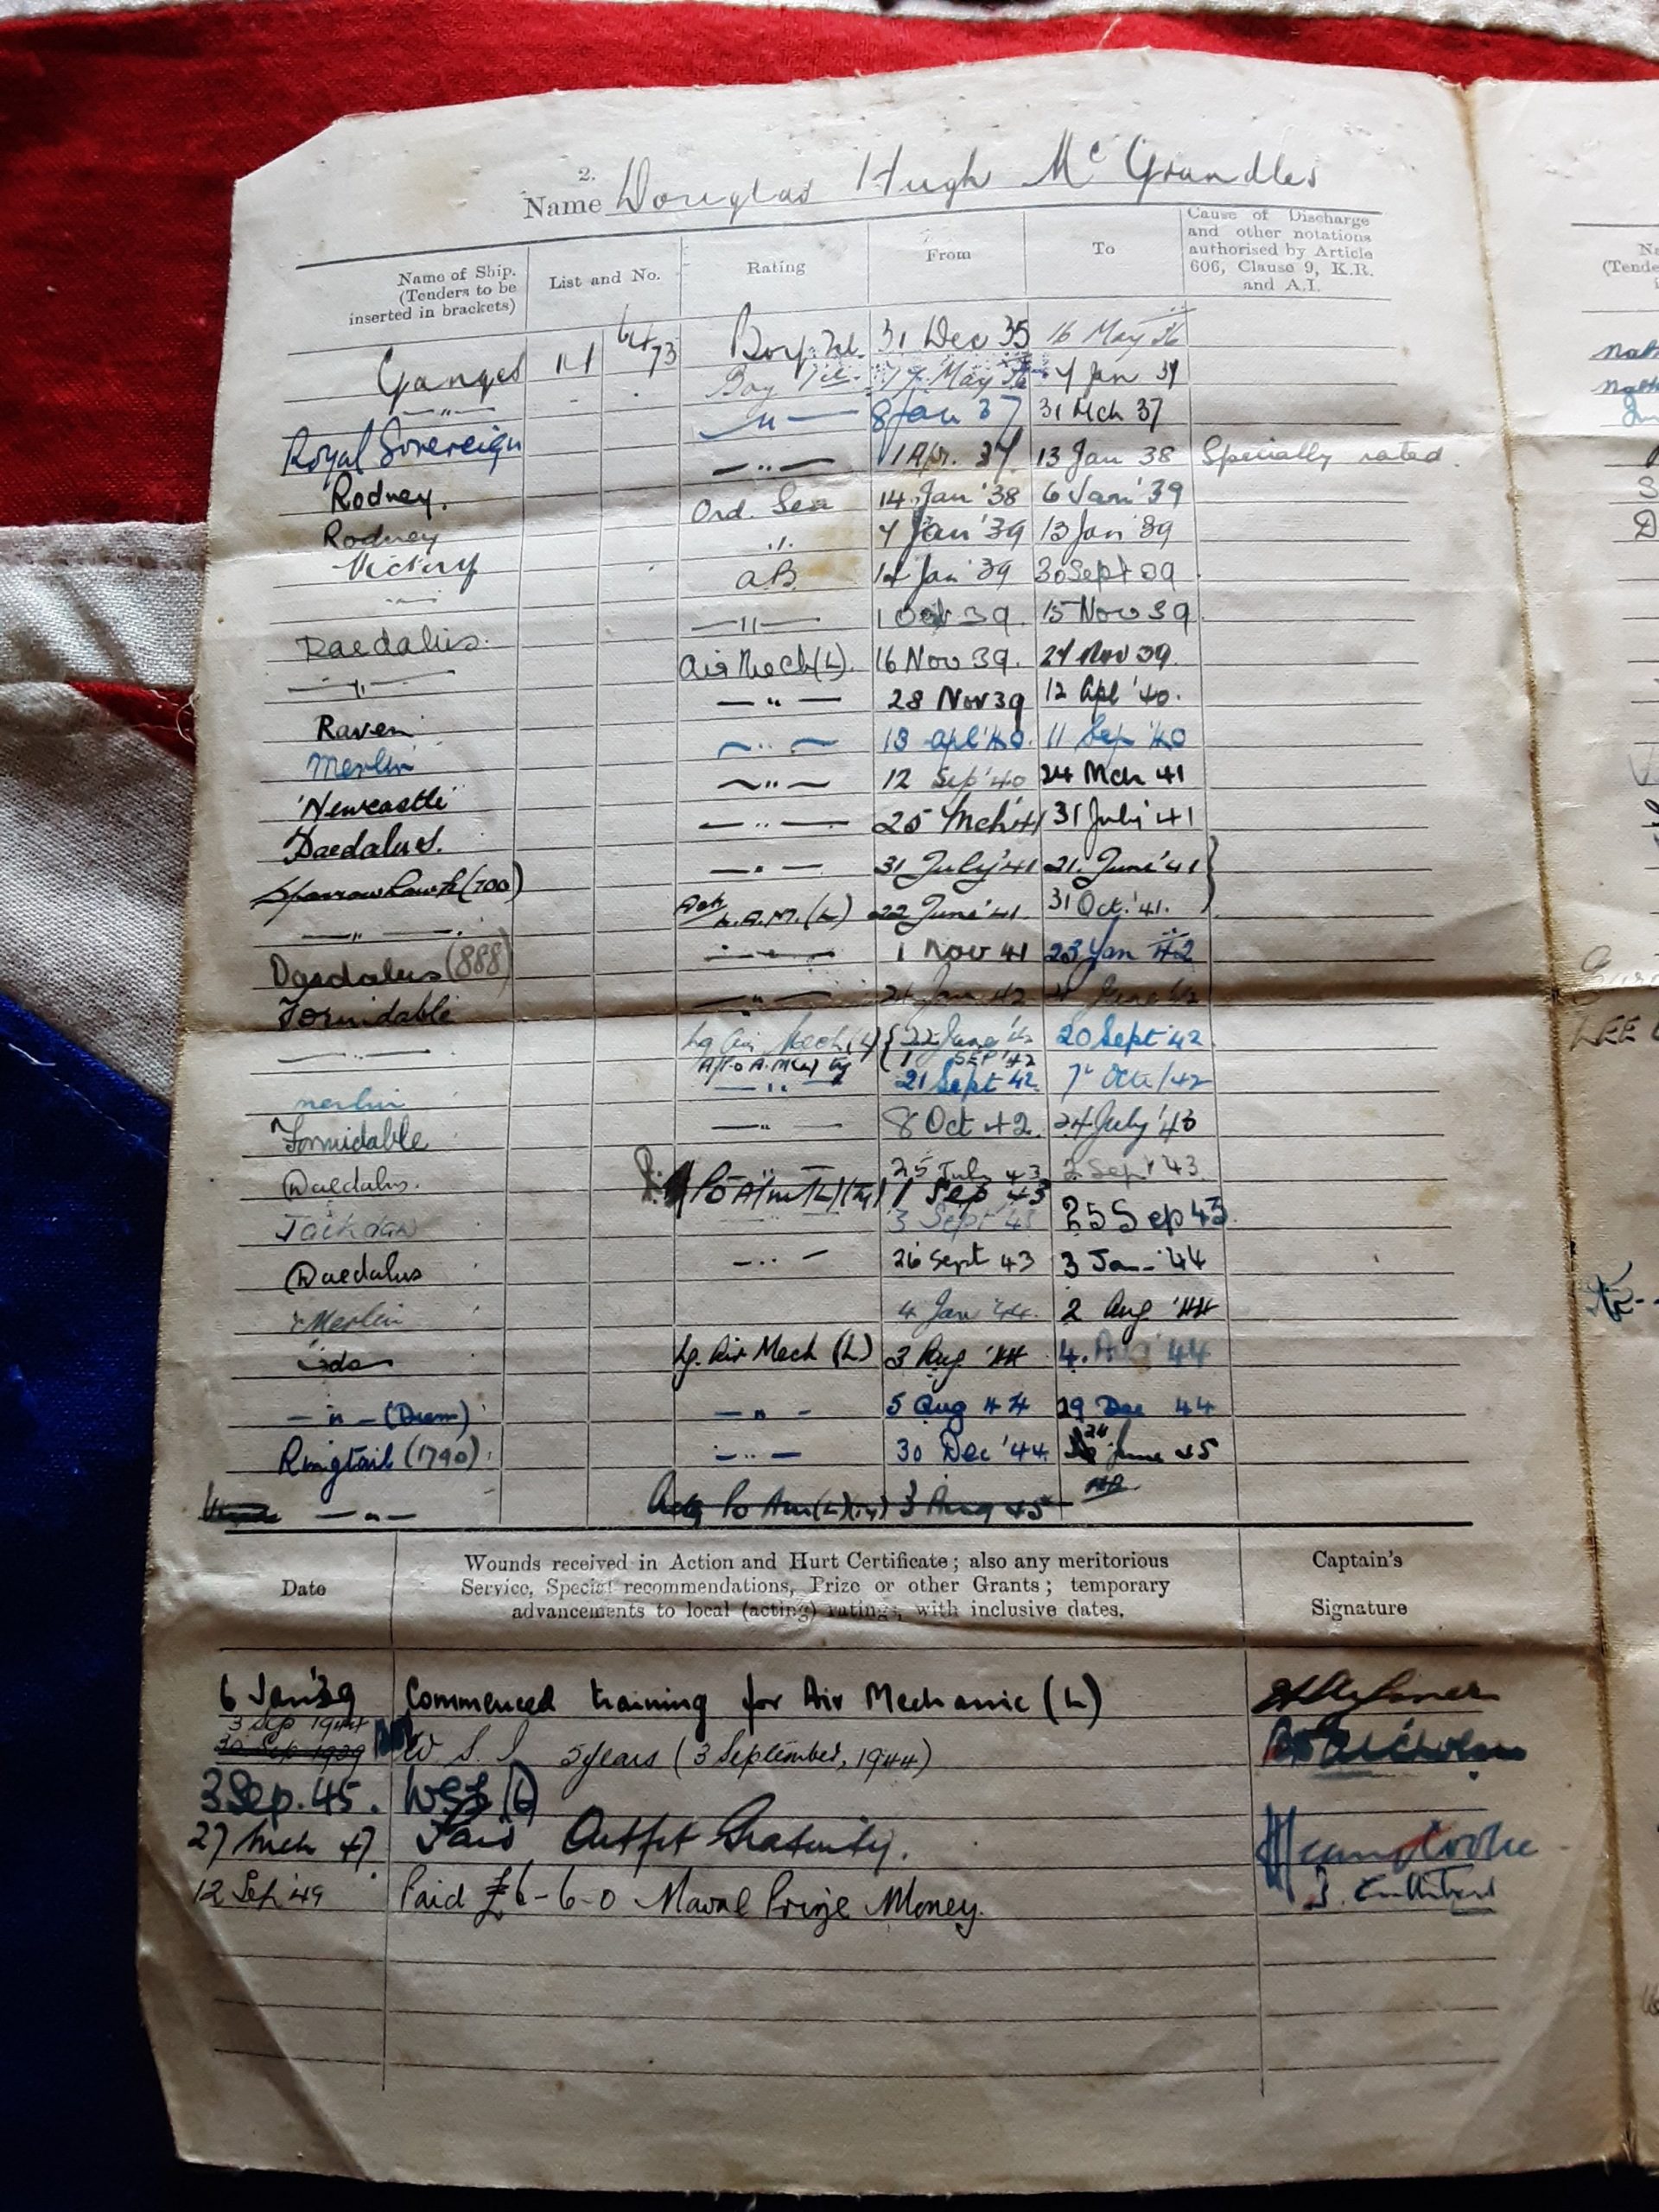 2.
Name Douglas Hugh Mc Grandles
Name of Ship. (Tenders to be inserted in brackets) List and No. Rating From To Cause of Discharge and other notations authorised by Article 606, Clause 9, K.R. and A.I.
Ganges 11 Boy 31 Dec 35 16 May 36
—"— Boy 17 May 36 7 Jan 37
Royal Sovereign —"— 8 Jan 37 31 Mch 37
Rodney. —"— 1 Apr. 37 13 Jan 38 Specially rated.
Rodney Ord. Sea 14 Jan '38 6 Jan '39
Victory " 7 Jan '39 13 Jan '39
—"— AB 14 Jan '39 30 Sept 39
Daedalus. —"— 1 Oct 39. 15 Nov 39
—"— Air Mech (L). 16 Nov 39. 27 Nov 39.
Raven —"— 28 Nov 39 12 Apl '40.
Merlin —"— 13 Apl '40. 11 Sep '40
'Newcastle' —"— 12 Sep '40 24 Mch 41
Daedalus. —"— 25 Mch '41 31 July '41
Sparrowhawk (700) —"— 31 July '41 21 June '41
—"—. Actg L.A.M. (L) 22 June '41. 31 Oct. '41.
Daedalus (888) —"— 1 Nov 41 23 Jan 42
Formidable —"— 24 Jan 42 June 42
—"— Lg Air Mech (L) 22 June '42 20 Sept '42
1 SEP '42
Merlin —"— 21 Sept 42 7 Oct/42
Formidable —"— 8 Oct 42. 24 July '43
Daedalus. 25 July 43 2 Sept 43
PO AM (L) (Ty) 1 Sep 43
Jackdaw 3 Sept 43 25 Sep 43
Daedalus —"— 26 Sept 43 3 Jan '44
Merlin 4 Jan '44. 2 Aug '44
do Lg. Air Mech (L) 3 Aug '44 4. Aug 44
—"— —"— 5 Aug 44 29 Dec 44
Ringtail (1790) —"— 30 Dec '44. June 45
—"— Actg Po Am (L) (Ty) 3 Aug 45
Date Wounds received in Action and Hurt Certificate; also any meritorious Service, Special recommendations, Prize or other Grants; temporary advancements to local (acting) ratings, with inclusive dates. Captain's Signature
6 Jan '39 Commenced training for Air Mechanic (L)
3 Sep 1944
30 Sep 1939 W S I 5 years (3 September, 1944)
3 Sep. 45. WSI
27 Mch 47 Paid Outfit Gratuity.
12 Sep '49 Paid £6-6-0 Naval Prize Money.